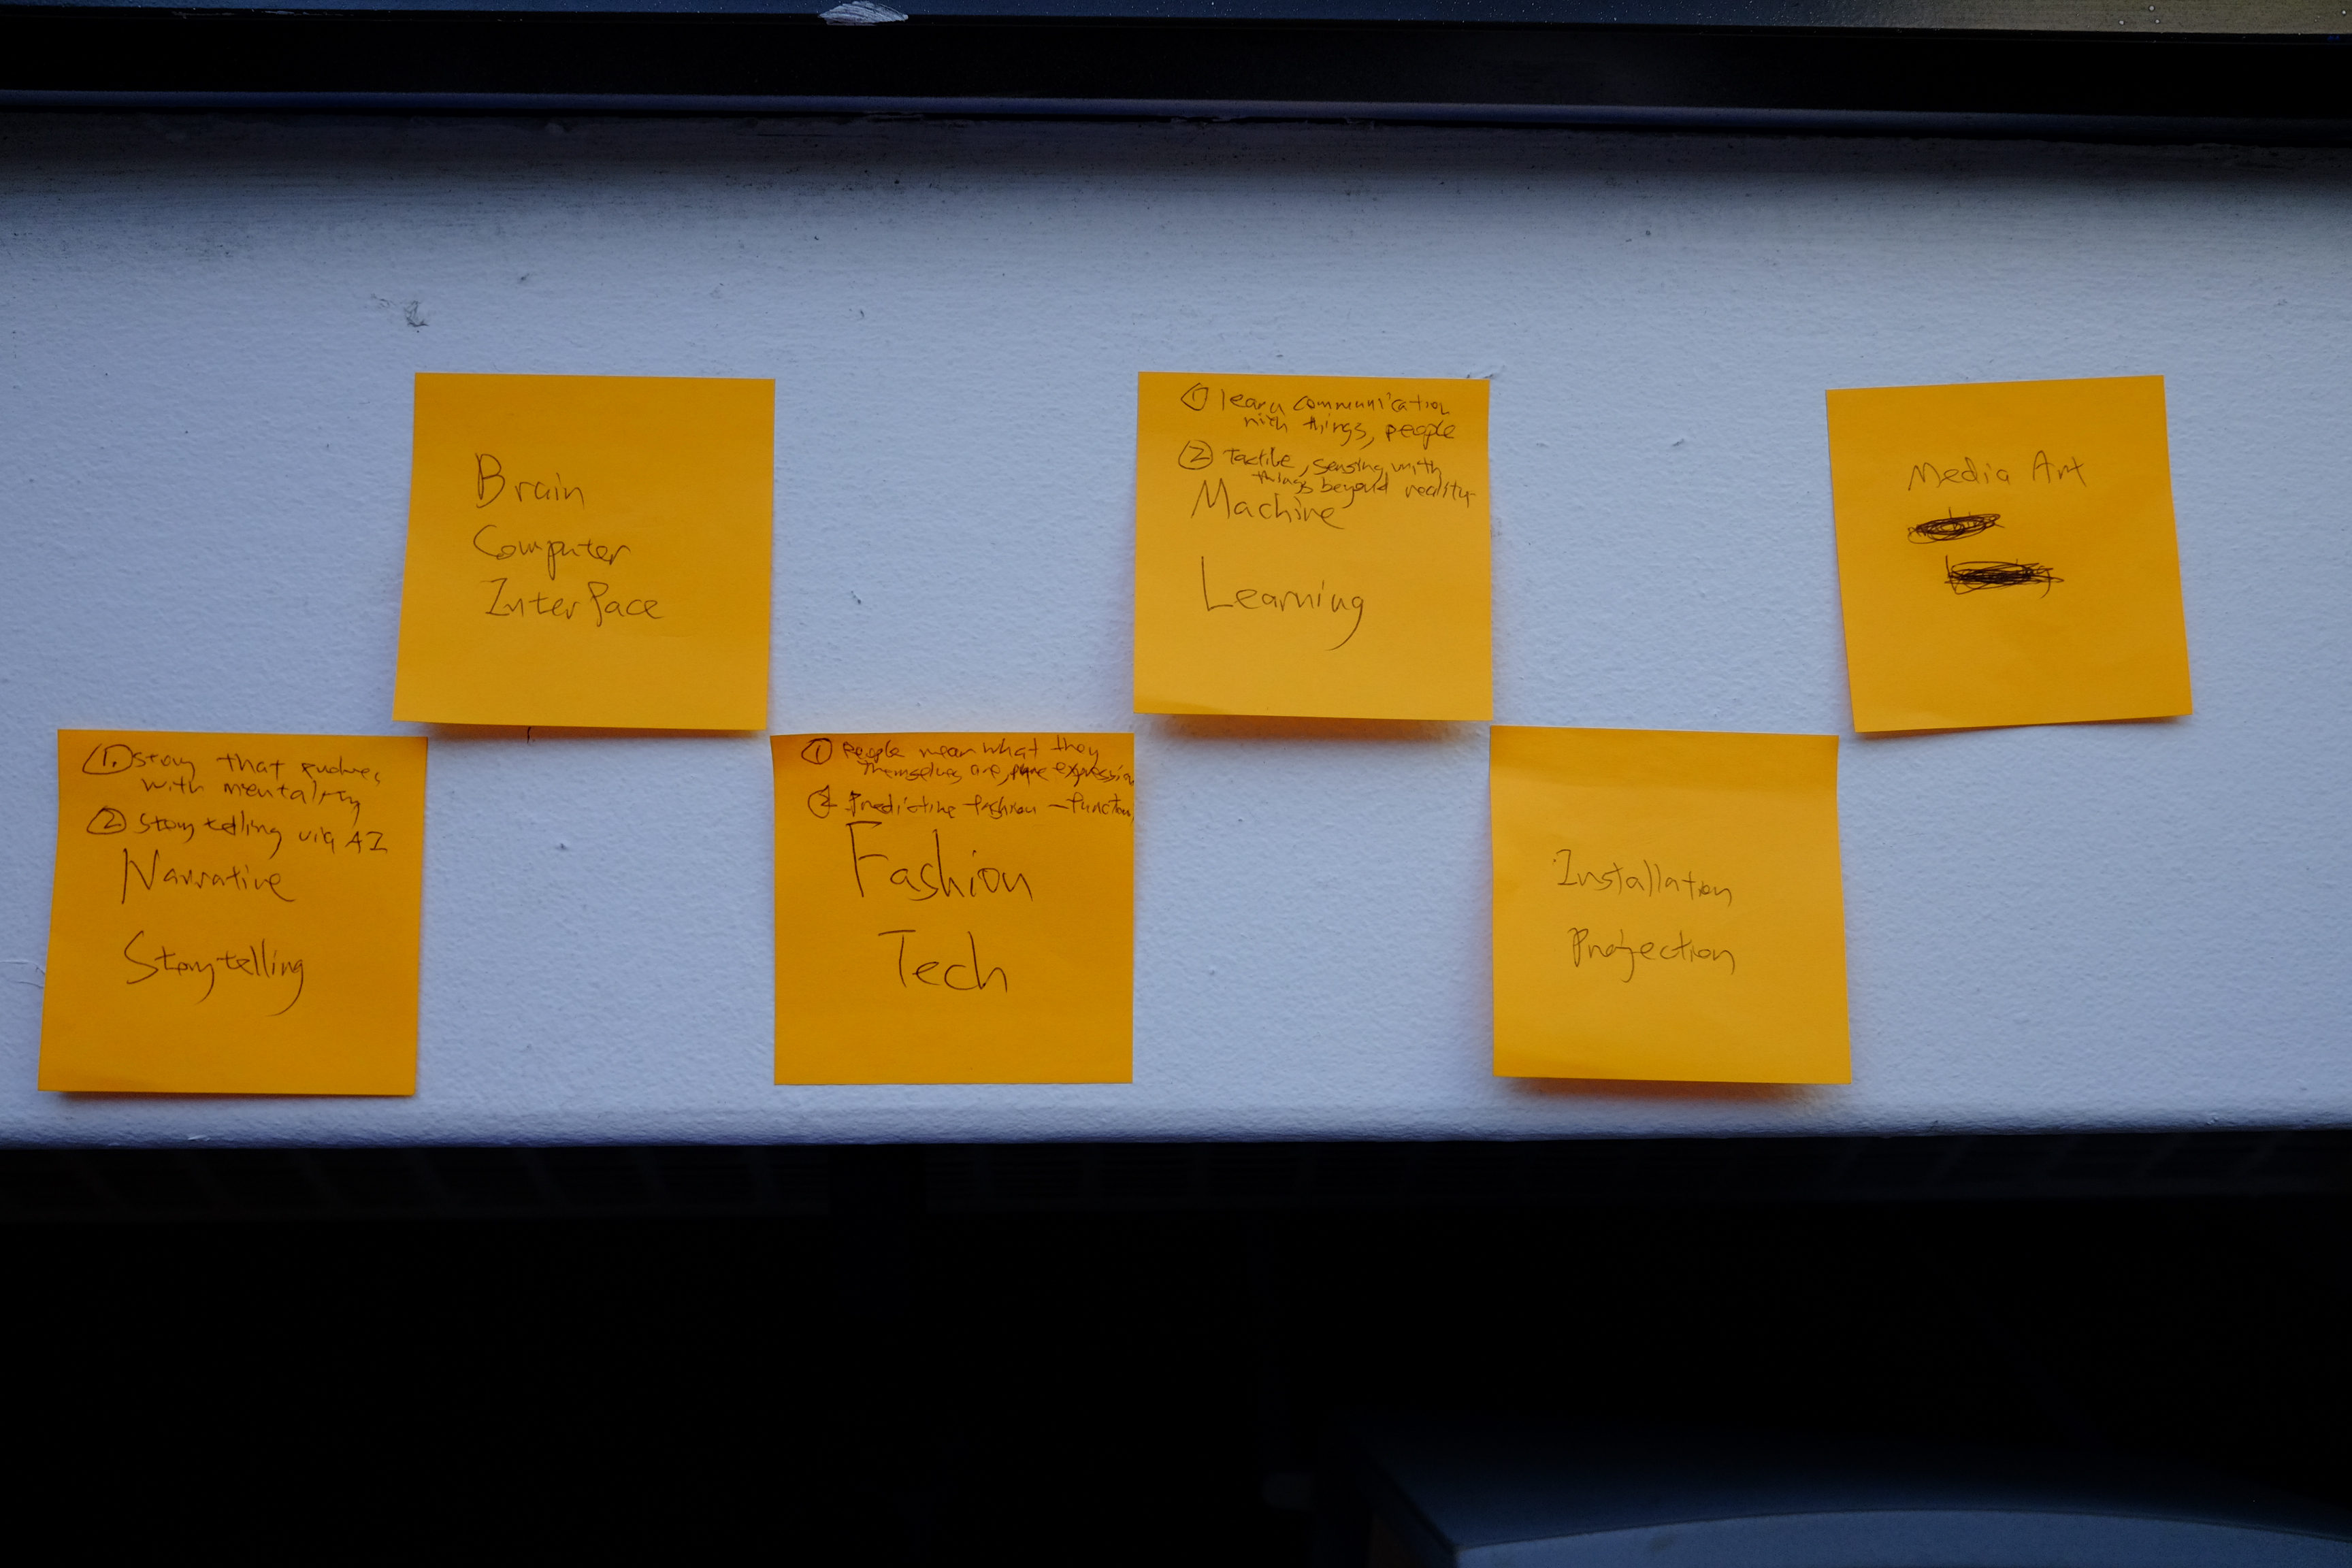 Brain
Computer
Interface
① learn communication
with things, people
② Tactile, sensing with
things beyond reality
Machine
Learning
Media Art
①. story that evolves
with mentality
② storytelling via AI
Narrative
Storytelling
① People wear what they
themselves are, pure expression
② Predictive fashion - function
Fashion
Tech
Installation
Projection